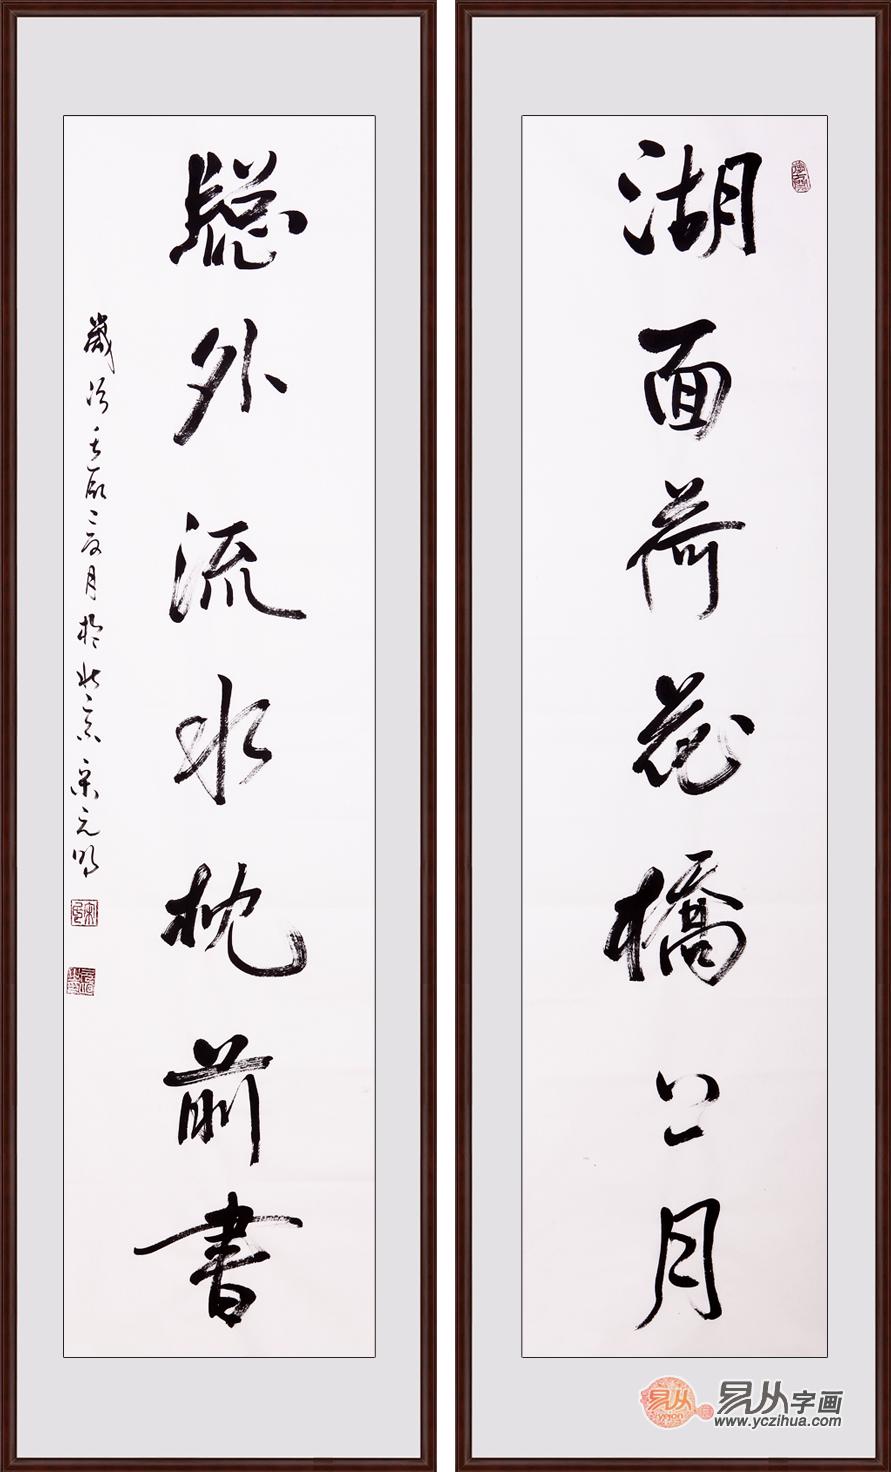 湖面荷花橋上月
牕外流水枕前書
歲次壬辰夏月於北京宋元明
易从字画
yejon
www.yczihua.com